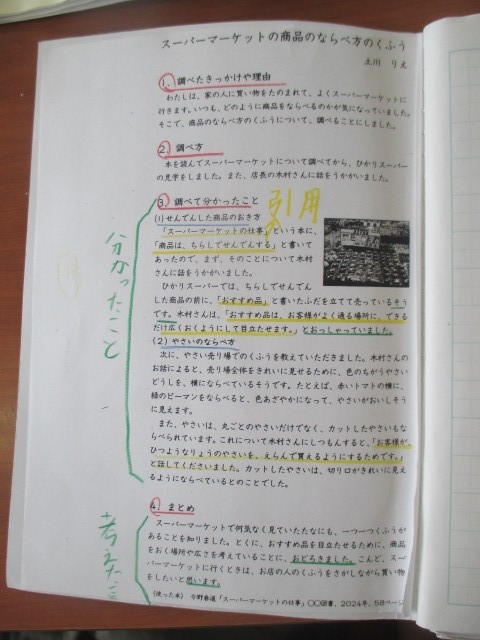 スーパーマーケットの商品のならべ方のくふう
土川 りえ
1. 調べたきっかけや理由
わたしは、家の人に買い物をたのまれて、よくスーパーマーケットに
行きます。いつも、どのように商品をならべるのかが気になっていました。
そこで、商品のならべ方のくふうについて、調べることにしました。
2. 調べ方
本を読んでスーパーマーケットについて調べてから、ひかりスーパー
の見学をしました。また、店長の木村さんに話をうかがいました。
3. 調べて分かったこと
引用
(1)せんでんした商品のおき方
「スーパーマーケットの仕事」という本に、
「商品は、ちらしでせんでんする」と書いて
あったので、まず、そのことについて木村
さんに話をうかがいました。
ひかりスーパーでは、ちらしでせんでん
した商品の前に、「おすすめ品」と書いたふだを立てて売っているそう
です。木村さんは、「おすすめ品は、お客様がよく通る場所に、できる
だけ広くおくようにして目立たせます。」とおっしゃっていました。
(2)やさいのならべ方
次に、やさい売り場でのくふうを教えていただきました。木村さん
のお話によると、売り場全体をきれいに見せるために、色のちがうやさい
どうしを、横にならべているそうです。たとえば、赤いトマトの横に、
緑のピーマンをならべると、色あざやかになって、やさいがおいしそう
に見えます。
また、やさいは、丸ごとのやさいだけでなく、カットしたやさいもな
らべられています。これについて木村さんにしつもんすると、「お客様が、
ひつようなりょうのやさいを、えらんで買えるようにするためです。」
と話してくださいました。カットしたやさいは、切り口がきれいに見え
るようにならべているとのことでした。
分かったこと
4. まとめ
スーパーマーケットで何気なく見ていたたなにも、一つ一つくふうが
あることを知りました。とくに、おすすめ品を目立たせるために、商品
をおく場所や広さを考えていることに、おどろきました。こんど、スー
パーマーケットに行くときは、お店の人のくふうをさがしながら買い物
をしたいと思います。
(使った本) 今野春道「スーパーマーケットの仕事」〇〇図書、2024年、58ページ
考えたこと